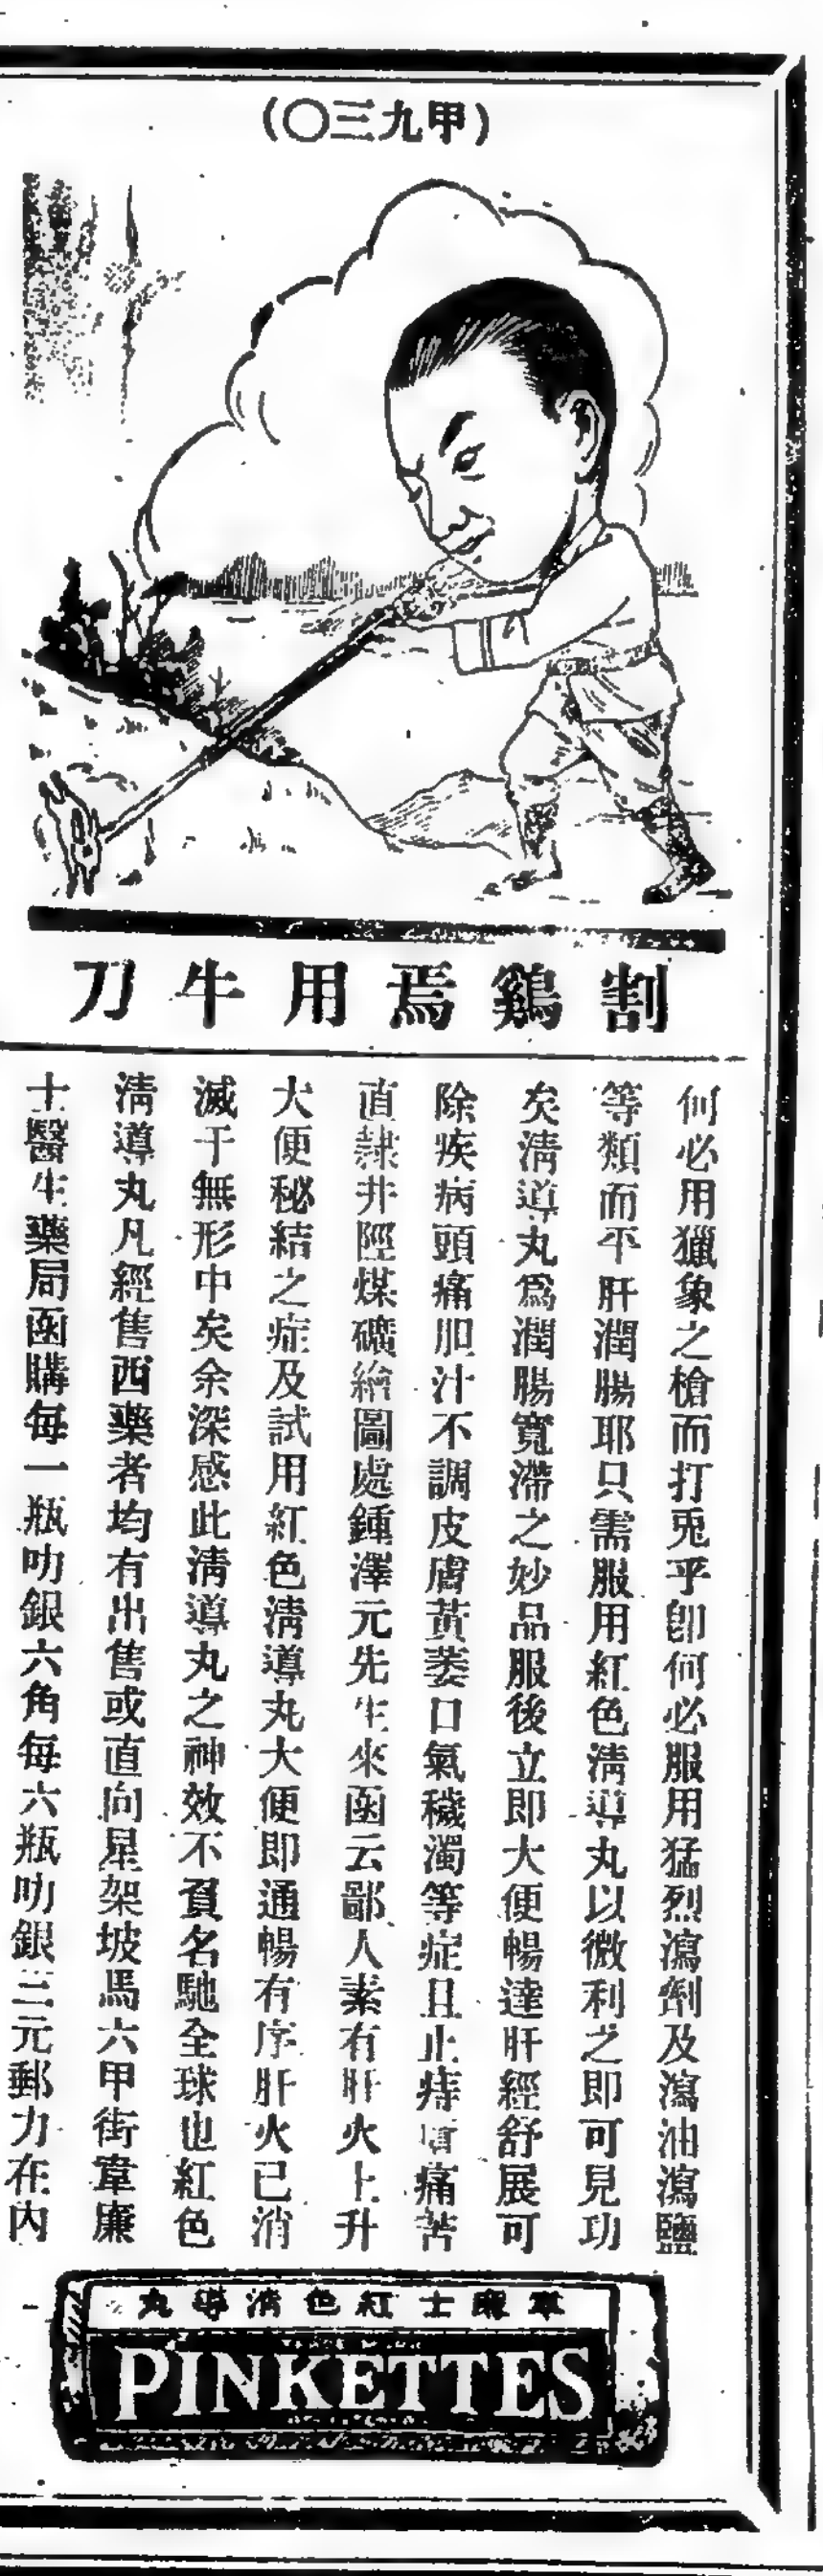 (甲九三〇)
割鷄焉用牛刀
何必用獵象之槍而打兎乎卽何必服用猛烈瀉劑及瀉油瀉鹽
等類而平肝潤腸耶只需服用紅色淸導丸以微利之卽可見功
矣淸導丸爲潤腸寬滯之妙品服後立卽大便暢達肝經舒展可
除疾病頭痛胆汁不調皮膚黃萎口氣穢濁等症且止痔瘡痛苦
直隸井陘煤礦繪圖處鍾澤元先生來函云鄙人素有肝火上升
大便秘結之症及試用紅色淸導丸大便卽通暢有序肝火已消
滅于無形中矣余深感此淸導丸之神效不負名馳全球也紅色
淸導丸凡經售西藥者均有出售或直向星架坡馬六甲街韋廉
士醫生藥局函購每一瓶叻銀六角每六瓶叻銀三元郵力在內
韋廉士紅色淸導丸
PINKETTES